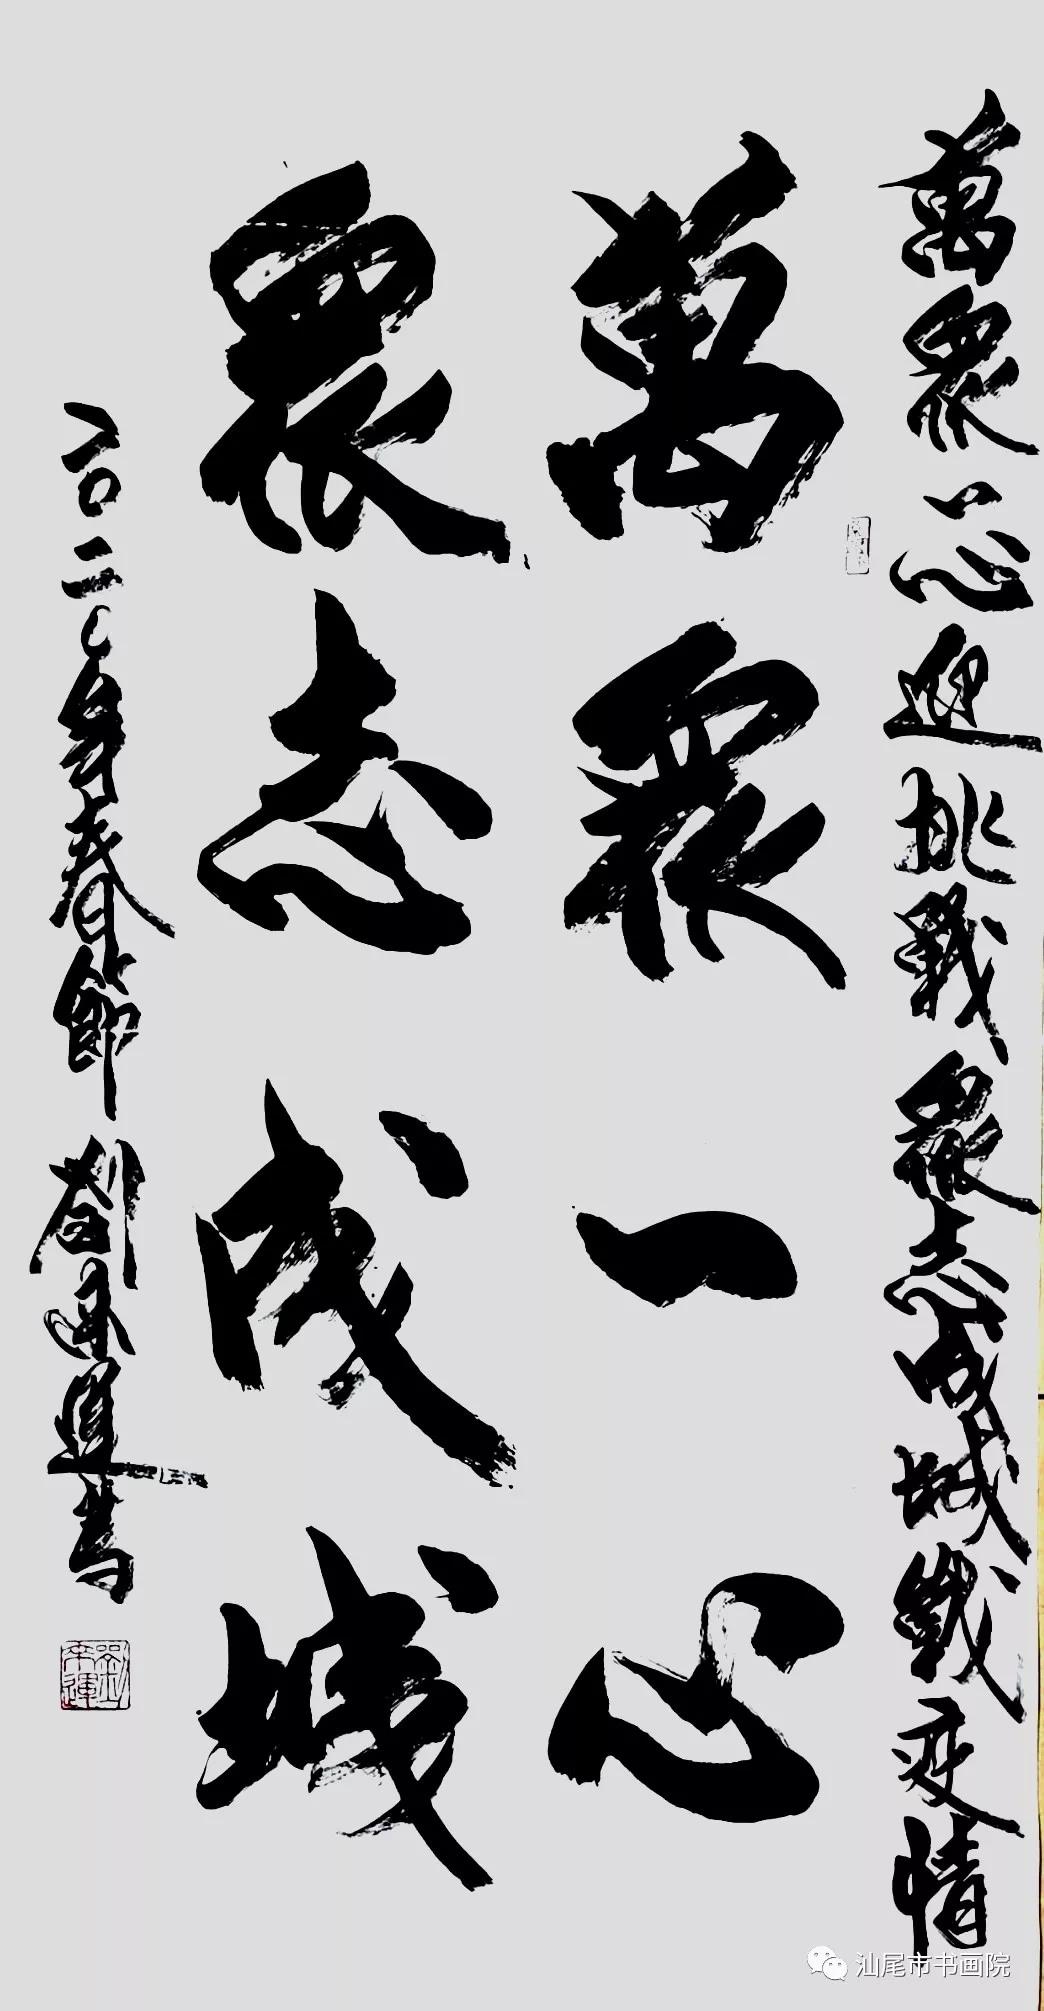 萬眾一心迎挑戰眾志成城戰疫情
萬眾一心
眾志成城
二〇二〇年春節劉來運書
劉來運
汕尾市书画院